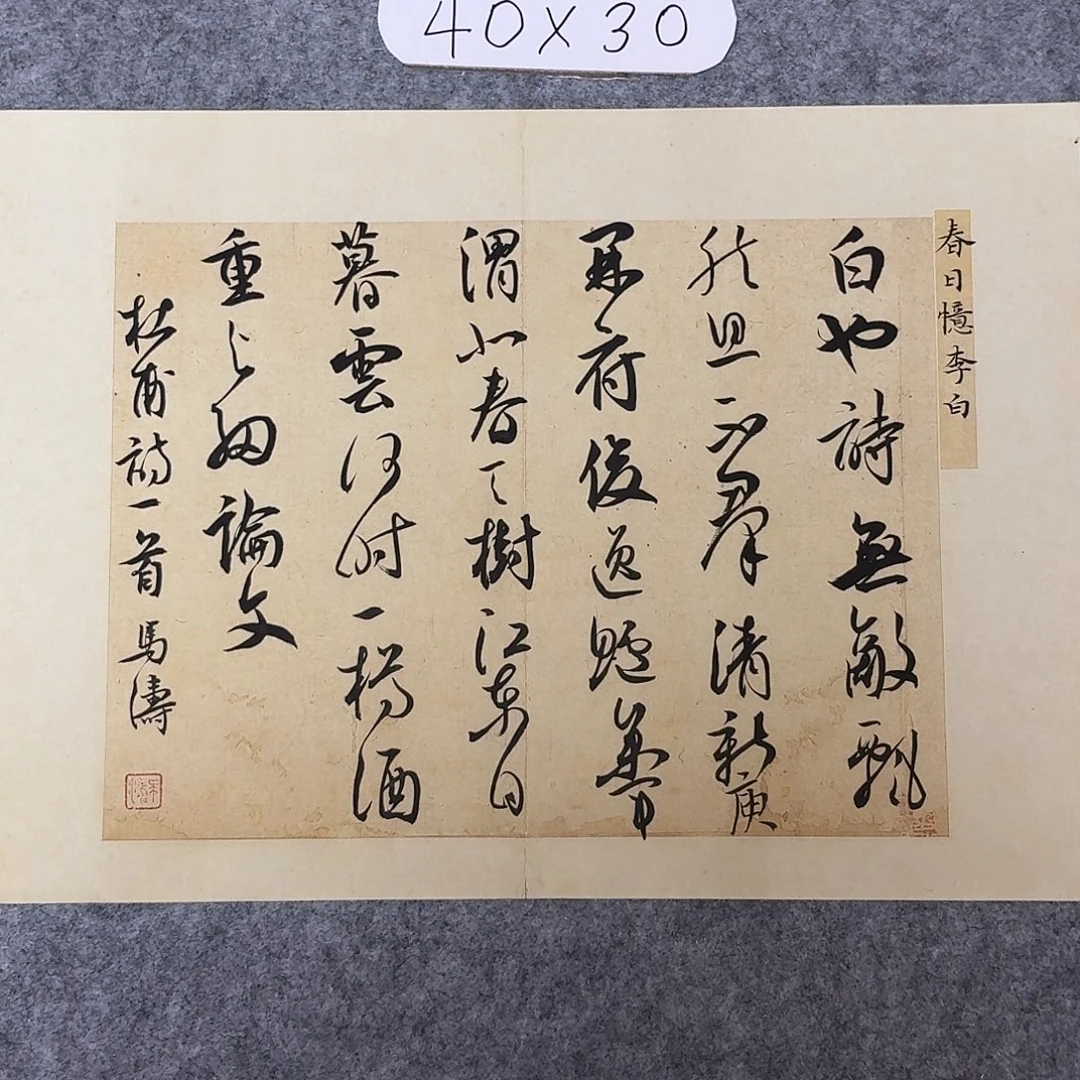 40X30
春日憶李白
白也詩無敵飄
然思不羣清新庾
開府俊逸鮑參軍
渭北春天樹江東日
暮雲何時一樽酒
重與細論文
杜甫詩一首 馬濤